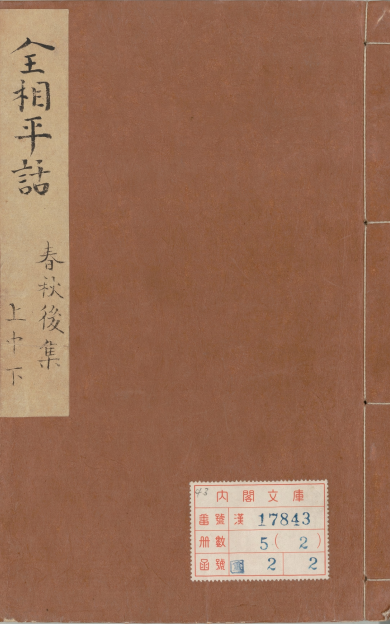 全相平話
春秋後集
上中下
43
内閣文庫
番號 漢 17843
册數 5(2)
函號 2 2